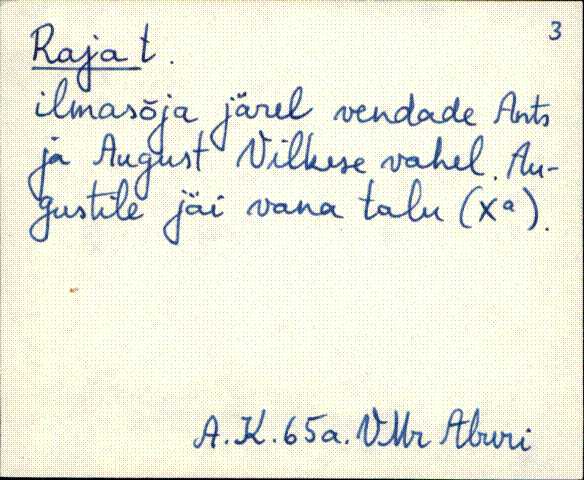 3
Raja t.
ilmasõja järel vendade Ants
ja August Vilkese vahel. Au-
gustile jäi vana talu (Xª).
A.K. 65a. VMr Aburi